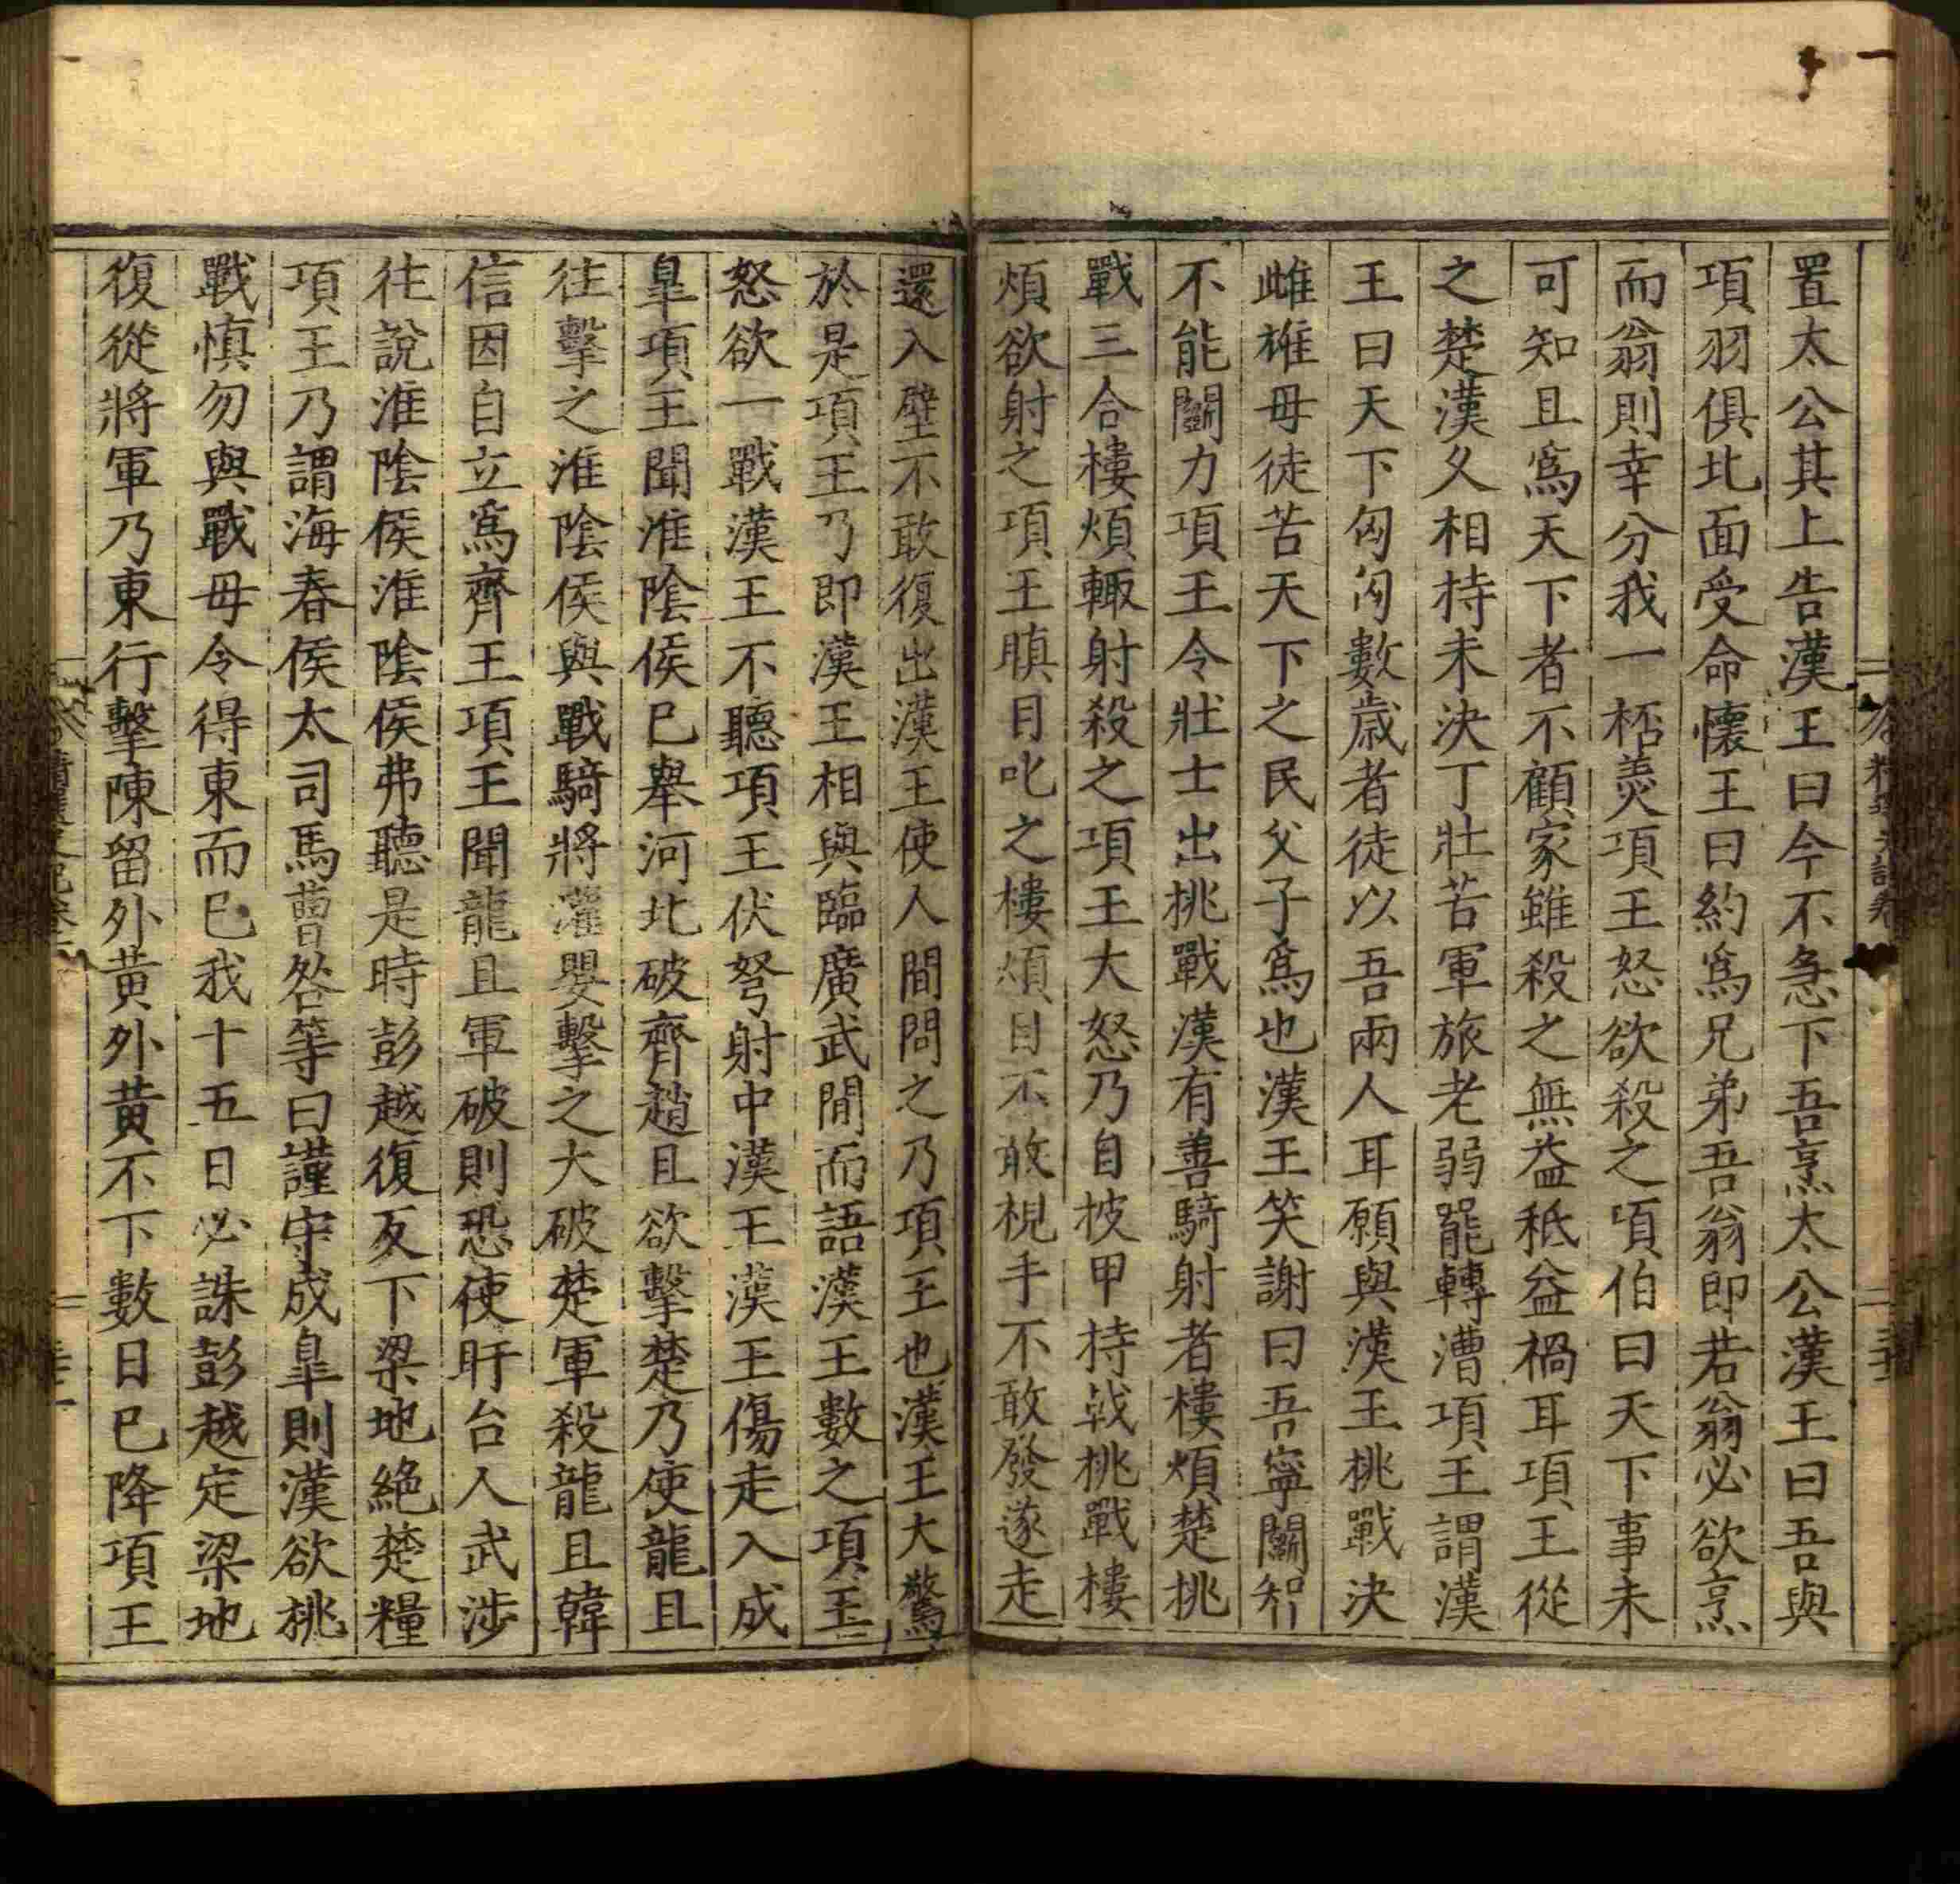 置太公其上告漢王曰今不急下吾烹太公漢王曰吾與
項羽俱北面受命懷王曰約爲兄弟吾翁即若翁必欲烹
而翁則幸分我一桮羹項王怒欲殺之項伯曰天下事未
可知且爲天下者不顧家雖殺之無益秪益禍耳項王從
之楚漢久相持未決丁壯苦軍旅老弱罷轉漕項王謂漢
王曰天下匈匈數歲者徒以吾兩人耳願與漢王挑戰決
雌雄毋徒苦天下之民父子爲也漢王笑謝曰吾寧鬭智
不能鬭力項王令壯士出挑戰漢有善騎射者樓煩楚挑
戰三合樓煩輙射殺之項王大怒乃自披甲持戟挑戰樓
煩欲射之項王瞋目叱之樓煩目不敢視手不敢發遂走
還入壁不敢復出漢王使人間問之乃項王也漢王大驚
於是項王乃即漢王相與臨廣武間而語漢王數之項王
怒欲一戰漢王不聽項王伏弩射中漢王漢王傷走入成
皐項王聞淮陰侯已舉河北破齊趙且欲擊楚乃使龍且
往擊之淮陰侯與戰騎將灌嬰擊之大破楚軍殺龍且韓
信因自立爲齊王項王聞龍且軍破則恐使盱台人武涉
往說淮陰侯淮陰侯弗聽是時彭越復反下梁地絶楚糧
項王乃謂海春侯太司馬曹咎等曰謹守成皐則漢欲挑
戰慎勿與戰毋令得東而已我十五日必誅彭越定梁地
復從將軍乃東行擊陳留外黄外黄不下數日已降項王